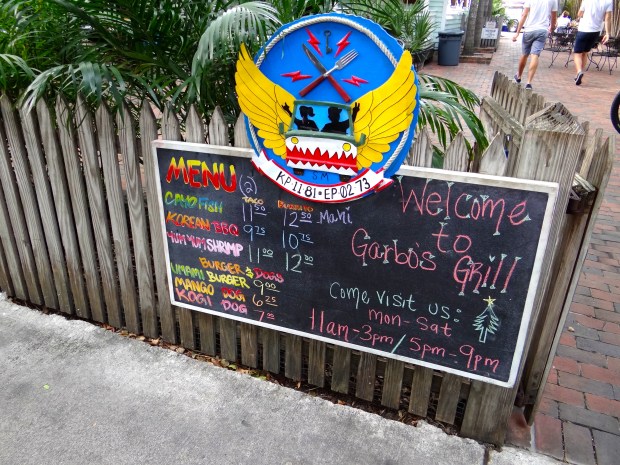 SM
KP 11 81 · EP 02 73
MENU (2)
TACO BURRITO
CAYO FISH 11 50 12 50 Mahi
KOREAN BBQ 9 75 10 75
YUM YUM SHRIMP 11 00 12 50
BURGER & DOGS
UMAMI BURGER 9 00
MANGO DOG 6 25
KOGI DOG 7 25
Welcome
to
Garbo's
Grill
Come visit us:
mon-Sat
11am-3pm/5pm-9pm